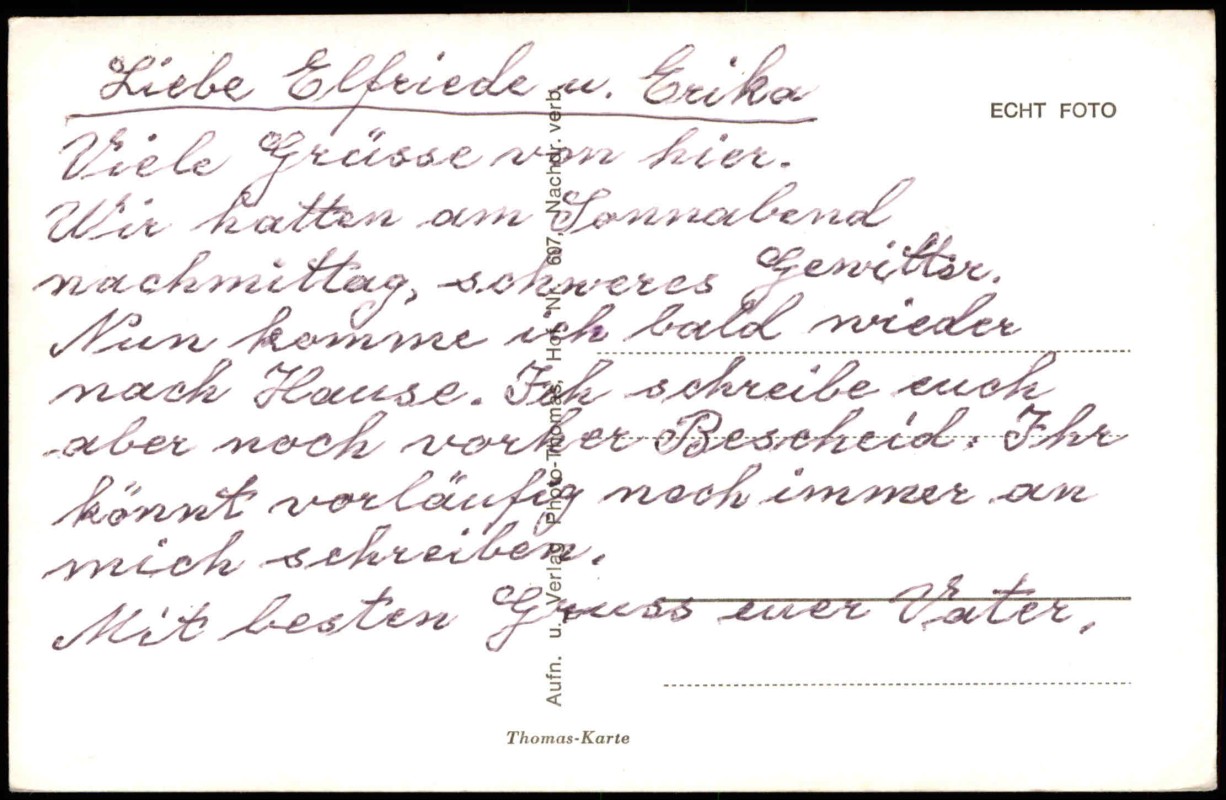 Liebe Elfriede u. Erika
ECHT FOTO
Viele Grüsse von hier.
Wir hatten am Sonnabend
nachmittag, schweres Gewitter.
Nun komme ich bald wieder
nach Hause. Ich schreibe euch
aber noch vorher Bescheid. Ihr
könnt vorläufig noch immer an
mich schreiben.
Mit besten Gruss euer Vater,
Aufn. u. Verlag Photo-Thomas, Hof, Nr. 607, Nachdr. verb.
Thomas-Karte